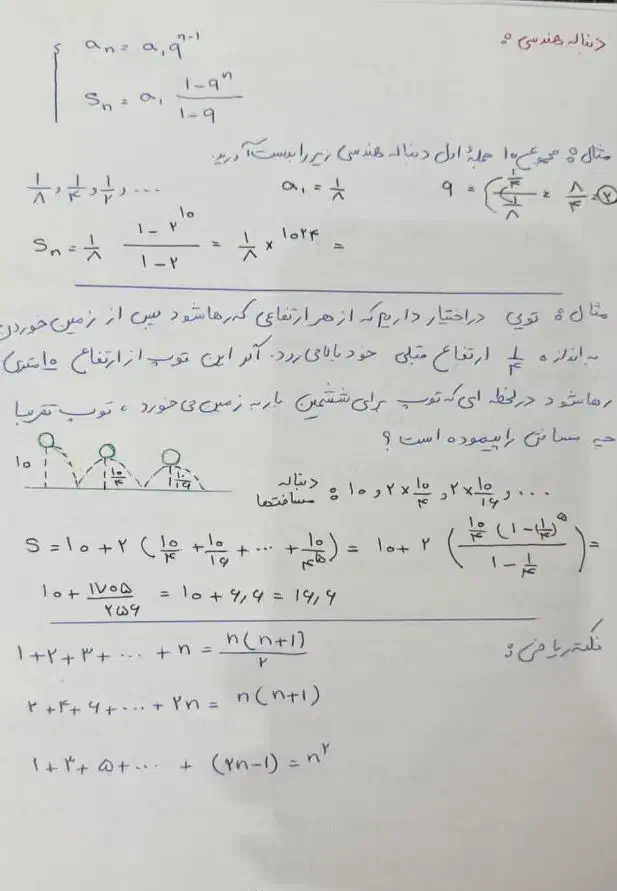 دنباله هندسی :
aₙ = a₁ qⁿ⁻¹
Sₙ = a₁ (1-qⁿ)/(1-q)
مثال : مجموع ۱۰ جملهٔ اول دنباله هندسی زیر را بدست آورید.
۱/۸ , ۱/۴ , ۱/۲ , ... a₁ = ۱/۸ q = (۱/۴)/(۱/۸) = ۸/۴ = ۲
Sₙ = ۱/۸ (۱-۲^۱۰)/(۱-۲) = ۱/۸ × ۱۰۲۴ =
مثال : توپی در اختیار داریم که از هر ارتفاعی که رها شود پس از زمین خوردن
به اندازه ۱/۴ ارتفاع قبلی خود بالا می رود. اگر این توپ از ارتفاع ۱۰ متری
رها شود در لحظه ای که توپ برای ششمین بار به زمین می خورد ، توپ تقریبا
چه مسافتی را پیموده است ؟
۱۰ ۱۰/۴ ۱۰/۱۶
دنباله مسافتها : ۱۰ , ۲×۱۰/۴ , ۲×۱۰/۱۶ , ...
S = ۱۰ + ۲ (۱۰/۴ + ۱۰/۱۶ + ... + ۱۰/۴^۵) = ۱۰ + ۲ ( ۱۰/۴ (۱-(۱/۴)^۵ / ۱-۱/۴ ) =
۱۰ + ۱۷۰۵/۲۵۶ = ۱۰ + ۶,۶ = ۱۶,۶
نکته ریاضی :
۱+۲+۳+ ... + n = n(n+۱)/۲
۲+۴+۶+ ... + ۲n = n(n+۱)
۱+۳+۵+ ... + (۲n-۱) = n^۲